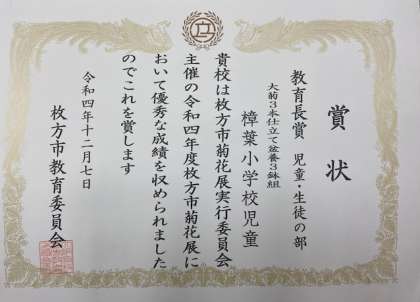 賞状
教育長賞 児童・生徒の部
大菊3本仕立て盆養3鉢組
樟葉小学校児童
貴校は枚方市菊花展実行委員会
主催の令和四年度枚方市菊花展に
おいて優秀な成績を収められました
のでこれを賞します
令和四年十二月七日
枚方市教育委員会